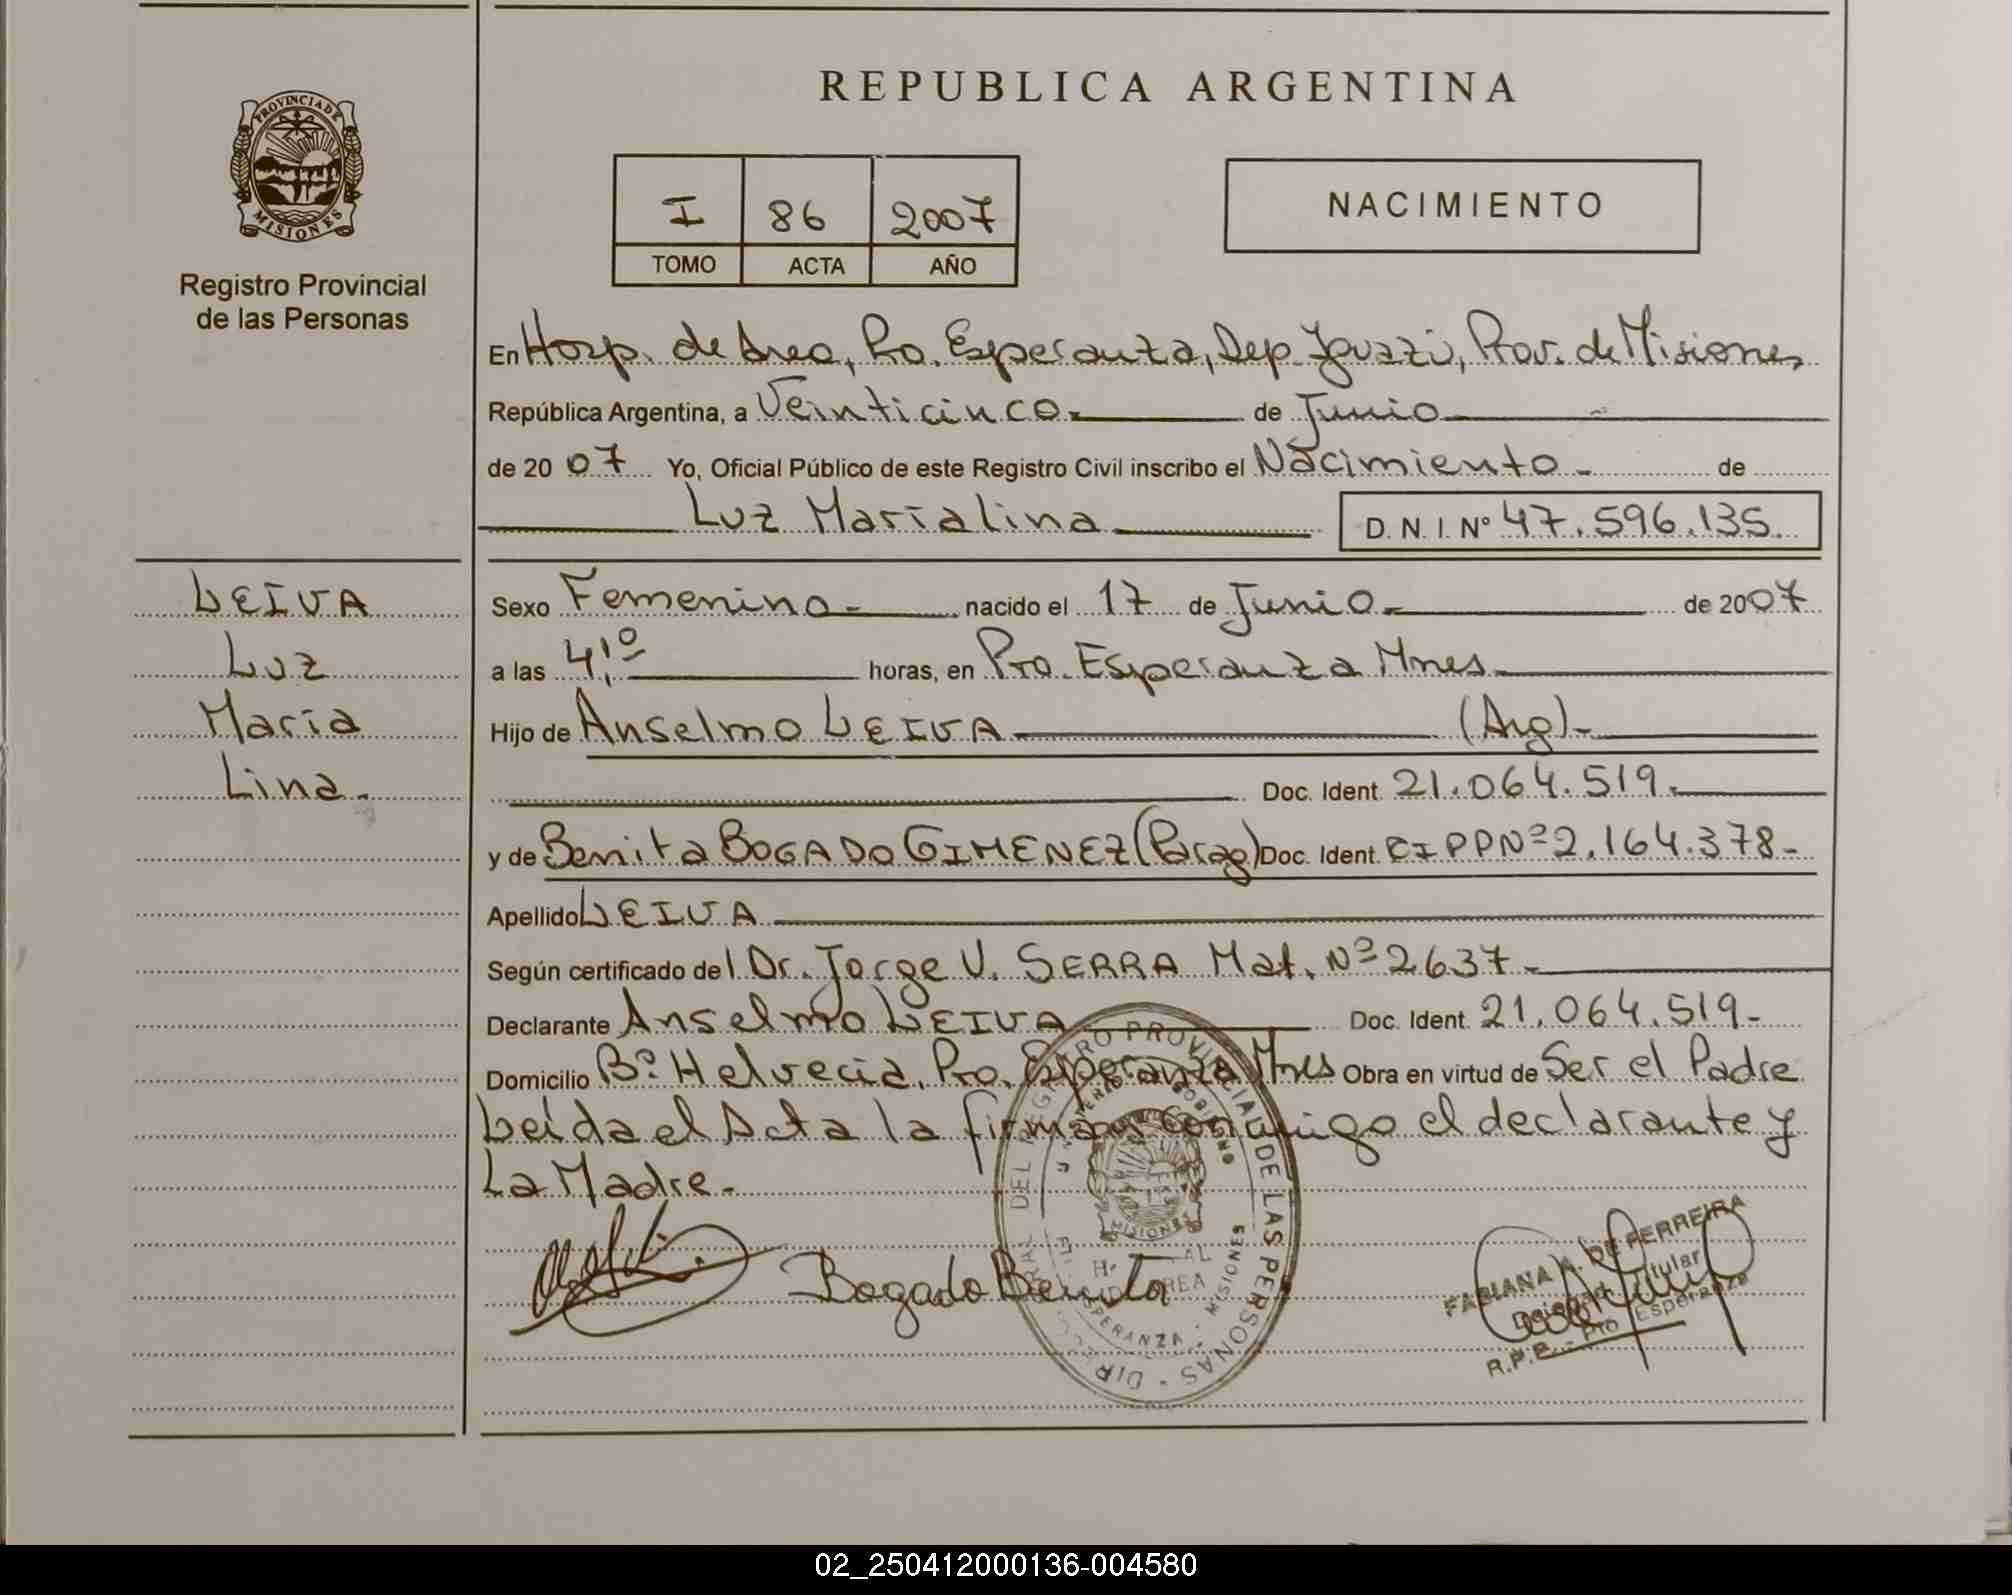 PROVINCIA DE
MISIONES
Registro Provincial
de las Personas
REPUBLICA ARGENTINA
I 86 2007
TOMO ACTA AÑO
NACIMIENTO
En Hosp. de Area, Pto. Esperanza, Dep. Iguazú, Prov. de Misiones
República Argentina, a Veinticinco de Junio
de 20 07 Yo, Oficial Público de este Registro Civil inscribo el Nacimiento - de
Luz María Lina D. N. I. Nº 47.596.135.
LEIVA
Luz
María
Lina.
Sexo Femenino - nacido el 17 de Junio - de 2007
a las 4,10 horas, en Pto. Esperanza Mnes
Hijo de Anselmo LEIVA (Arg)-
Doc. Ident. 21.064.519.
y de Benita BOGADO GIMENEZ (Parag) Doc. Ident. CIPPNº 2.164.378-
Apellido LEIVA
Según certificado del Dr. Jorge V. SERRA Mat. Nº 2637-
Declarante Anselmo LEIVA Doc. Ident. 21.064.519-
Domicilio Bº Helvecia, Pto. Esperanza Mnes Obra en virtud de Ser el Padre
Leída el Acta la firman conmigo el declarante y
La Madre.-
Bogado Benita
REGISTRO PROVINCIAL DE LAS PERSONAS
MISIONES
FABIANA A. DE FERREIRA
Titular
R.P.P. - Pto Esperanza
02_250412000136-004580